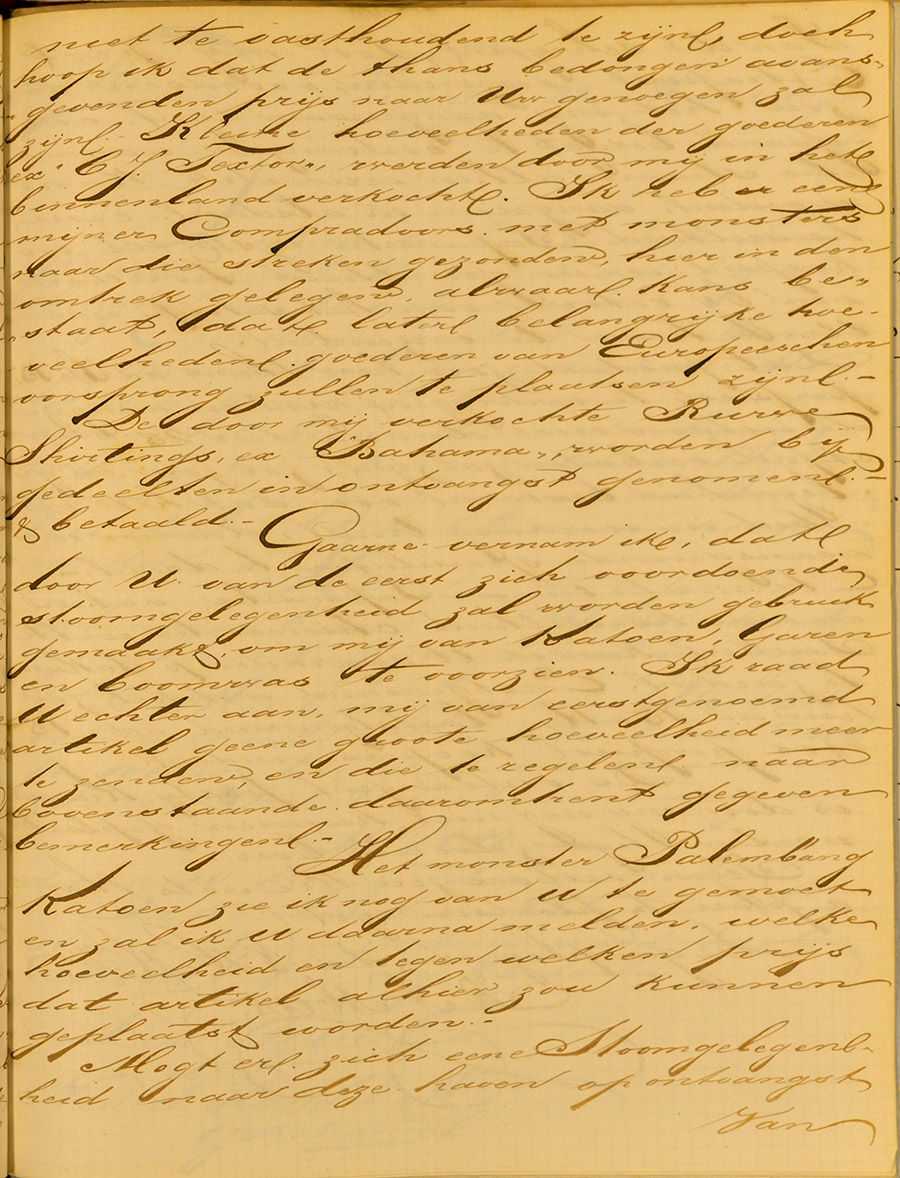 niet te vasthoudend te zijn, doch
hoop ik dat de thans bedongen avans„
„gevenden prijs naar Uw genoegen zal
zijn.- Kleine hoeveelheden der goederen
ex „C J. Textor„, werden door mij in het
binnenland verkocht. Ik heb er eens
mijner Compradoors met monsters
naar die streken gezonden, hier in den
omtrek gelegen, alwaar kans be„
„staat, dat later belangrijke hoe-
veelheden goederen van Europeeschen
oorsprong zullen te plaatsen zijn.-
De door mij verkochte Ruwe
Shirtings, ex „Bahama„, worden bij
gedeelten in ontvangst genomen.-
& betaald.-
Gaarne vernam ik, dat
door U van de eerst zich voordoende
stoomgelegenheid zal worden gebruik
gemaakt, om mij van Katoen, Garen
en boomwas te voorzien. Ik raad
U echter aan, mij van eerstgenoemd
artikel geene groote hoeveelheid meer
te zenden, en die te regelen naar
bovenstaande daaromtrent gegeven
bemerkingen.-
Het monster Palembang
Katoen zie ik nog van U te gemoet
en zal ik U daarna melden, welke
hoeveelheid en tegen welken prijs
dat artikel alhier zou kunnen
geplaatst worden.-
Mogt er zich eene Stoomgelegen-
heid naar deze haven op ontvangst
Van